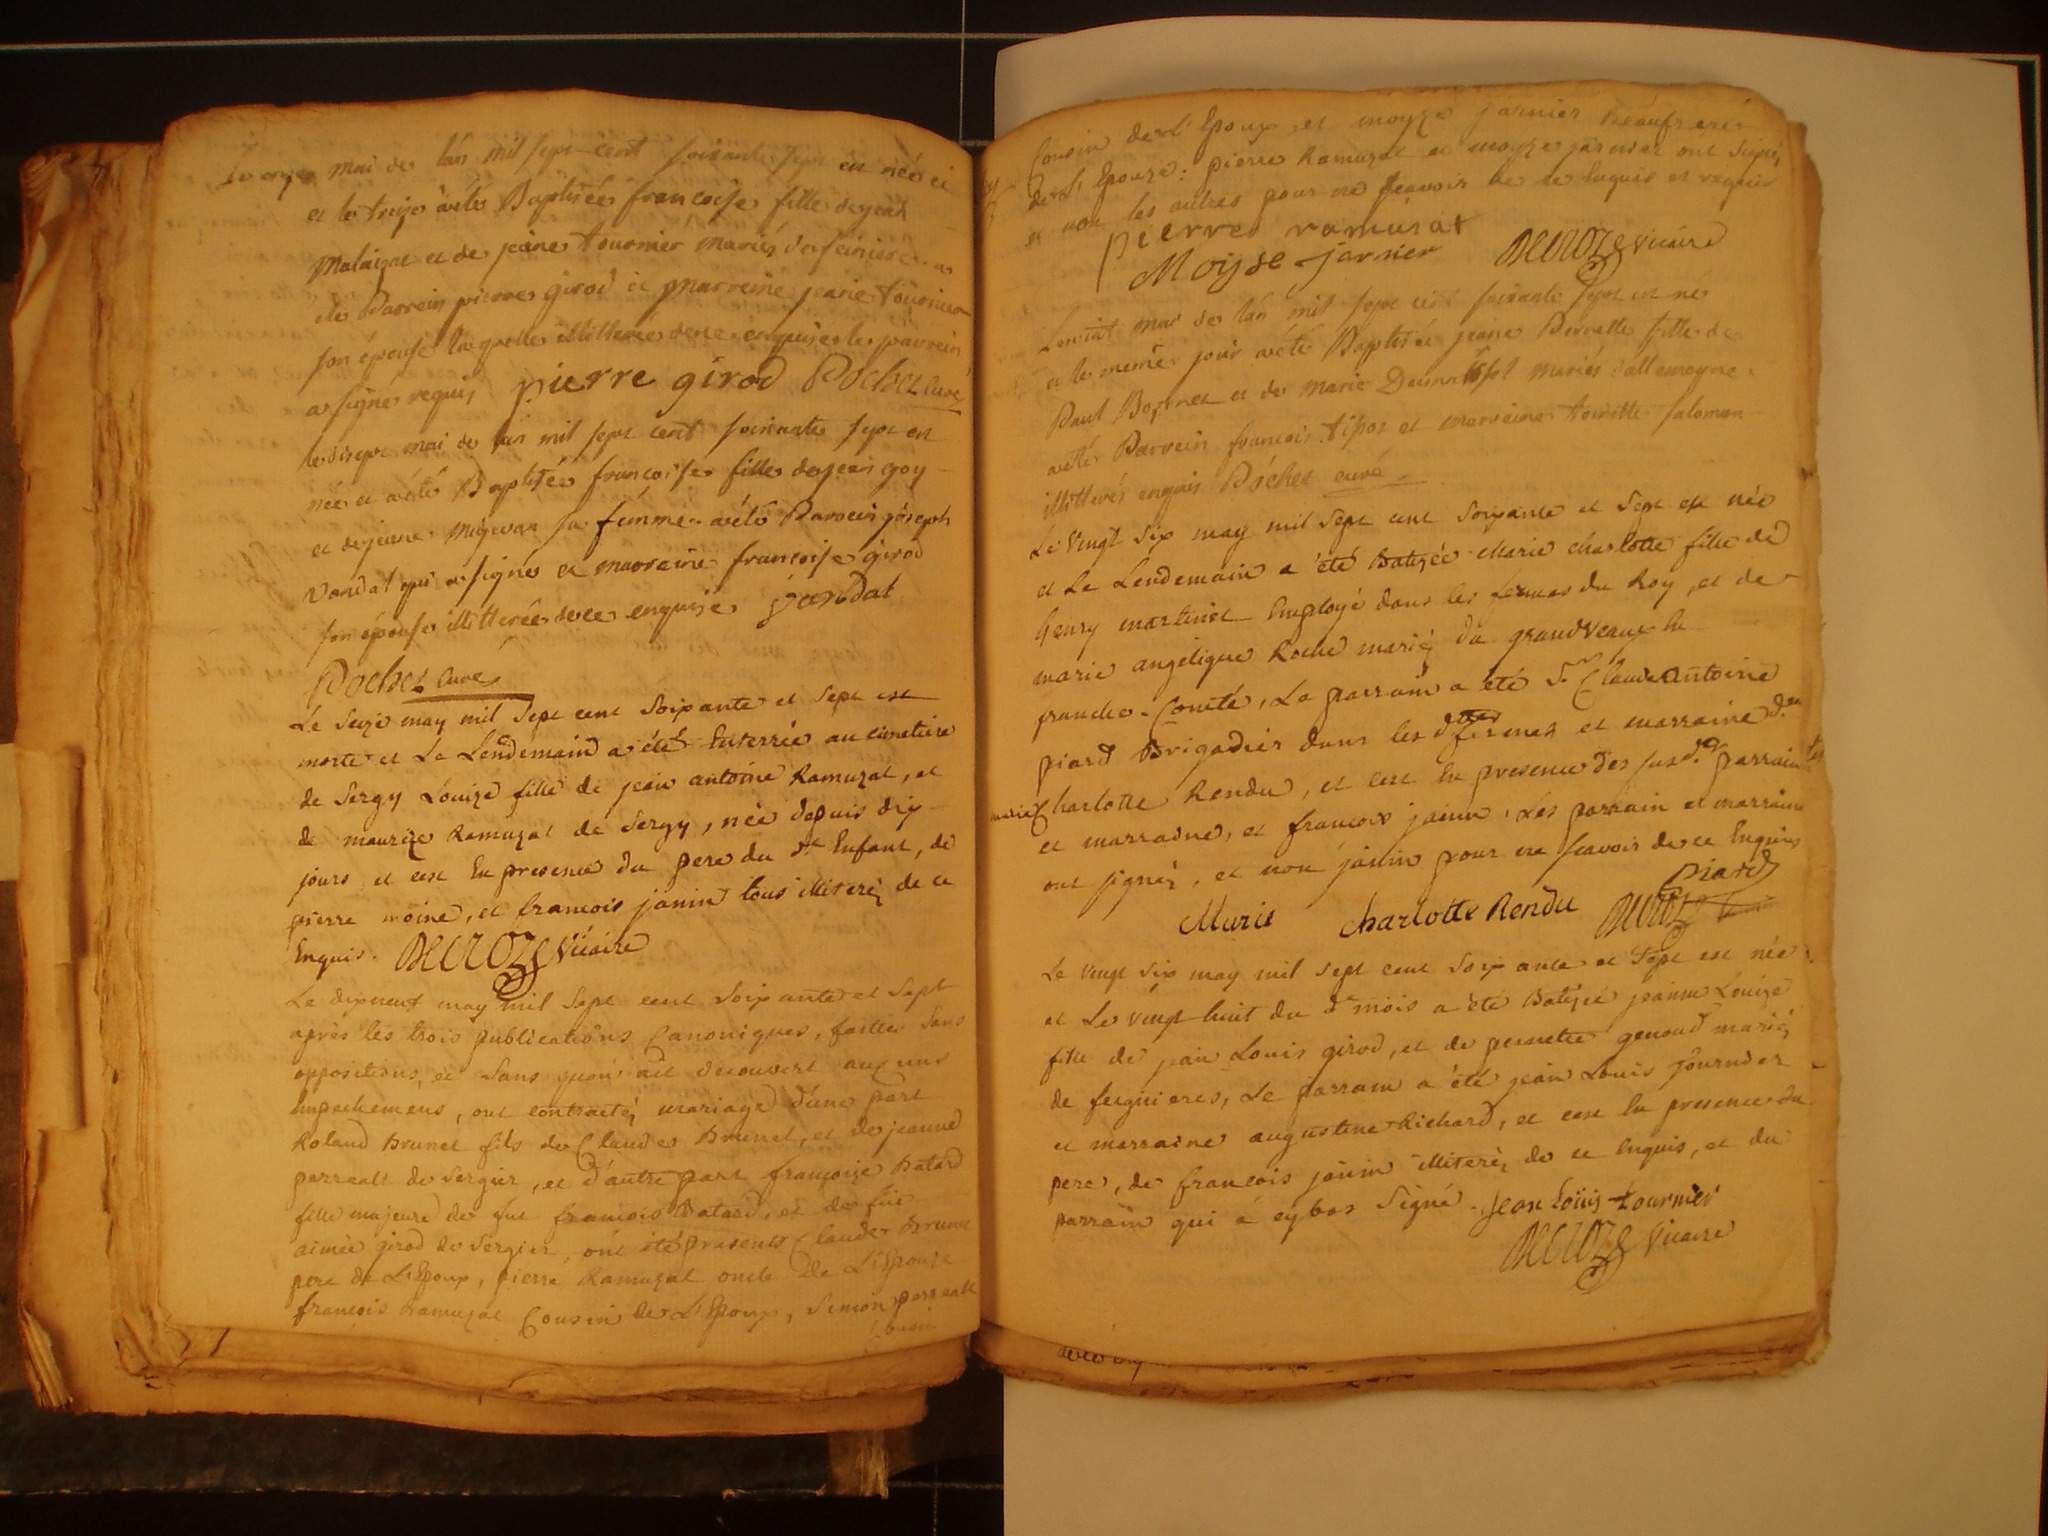 mai de lan mil sept cent soixante sept est née
et le treize aété Baptisée francoise fille de jean
et de jeane tournier Mariés de
été Parrein pierre girod et Marreine jeane tournier
son épouse laquelle illitterée de ce enquise le parrein
a signé requis pierre girod Pochet Curé
mai de lan mil sept cent soixante sept est
née et aété Baptisée francoise fille de jean goy
et de jeane sa femme aété Parrein joseph
Vandat qui a signé et marreine francoise girod
son épouse illitterée de ce enquise vandat
Pochet Curé
Le Seize may mil Sept cent Soixante et Sept est
morte et Le Lendemain a été Enterrée au cimetiere
de Sergy Louize fille de jean antoine Ramuzat, et
de maurize Ramuzat de Sergy, née depuis dix
jours et cest En presence du pere du dt Enfant, de
pierre moine, et francois janin tous illiteréz de ce
Enquis. Decroze Vicaire
Le dixneuf may mil Sept cent Soixante et Sept
après les trois publications Canoniques, faites Sans
oppositions, et Sans quon ait decouvert aucuns
Empechemens, ont contractéz mariage d'une part
Roland Brunet fils de Claude Brunet, et de jeanne
perreall de Sergier, et d'autre part francoize Batard
fille majeure de fut francois Batard, et de fut
aimée girod de Sergier, ont été présents Claude Brunet
pere de L'Epoux, pierre Ramuzat oncle de L'Epouze
francois Ramuzat Cousin de L'Epoux, Simon perreall
Cousin
Cousin de L'Epoux et moyze jarnier beaufrere
de L'Epouze: pierre Ramuzat et moyze jarnier ont Signé,
et non les autres pour ne sçavoir de ce Enquis et requis
pierre ramusat
Moyse jarnier Decroze Vicaire
Levint mai de lan mil sept cent soixante sept est né
et le meme jour aété Baptisée jeane Pernette fille de
Paul Bornet et de Marie mariés dallemogne
aété Parrein francois tissot et marreine toinette salomon
illitterés enquis Pochet curé
Le Vingt Six may mil Sept cent Soixante et Sept est née
et Le Lendemain a été Batizée Marie charlotte fille de
henry martinet Employé dans les fermes du Roy, et de
marie angelique Roche mariéz du grandveaux En
franche-Comté, Le parrain a été Sr. Claude antoine
piard Brigadier dans les dittes fermes et marraine dlle
marie Charlotte Rendu, et cest En presence des susdts parrain
et marraine, et francois janin, Les parrain et marraine
ont signéz, et non janin pour ne sçavoir de ce Enquis
Piard
Marie Charlotte Rendu Decroze
Le vingt Six may mil Sept cent Soixante et Sept est née
et Le vingt huit du dt mois a été Batizée jeanne Louize
fille de jean Louis girod, et de pernette genoud mariéz
de feignieres, Le parrain a été jean Louis journier
et marraine augustine Richard, et cest En presence du
pere, de francois janin illiteréz de ce Enquis, et du
parrain qui a cy bas Signé. Jean Louis tournier
Decroze Vicaire